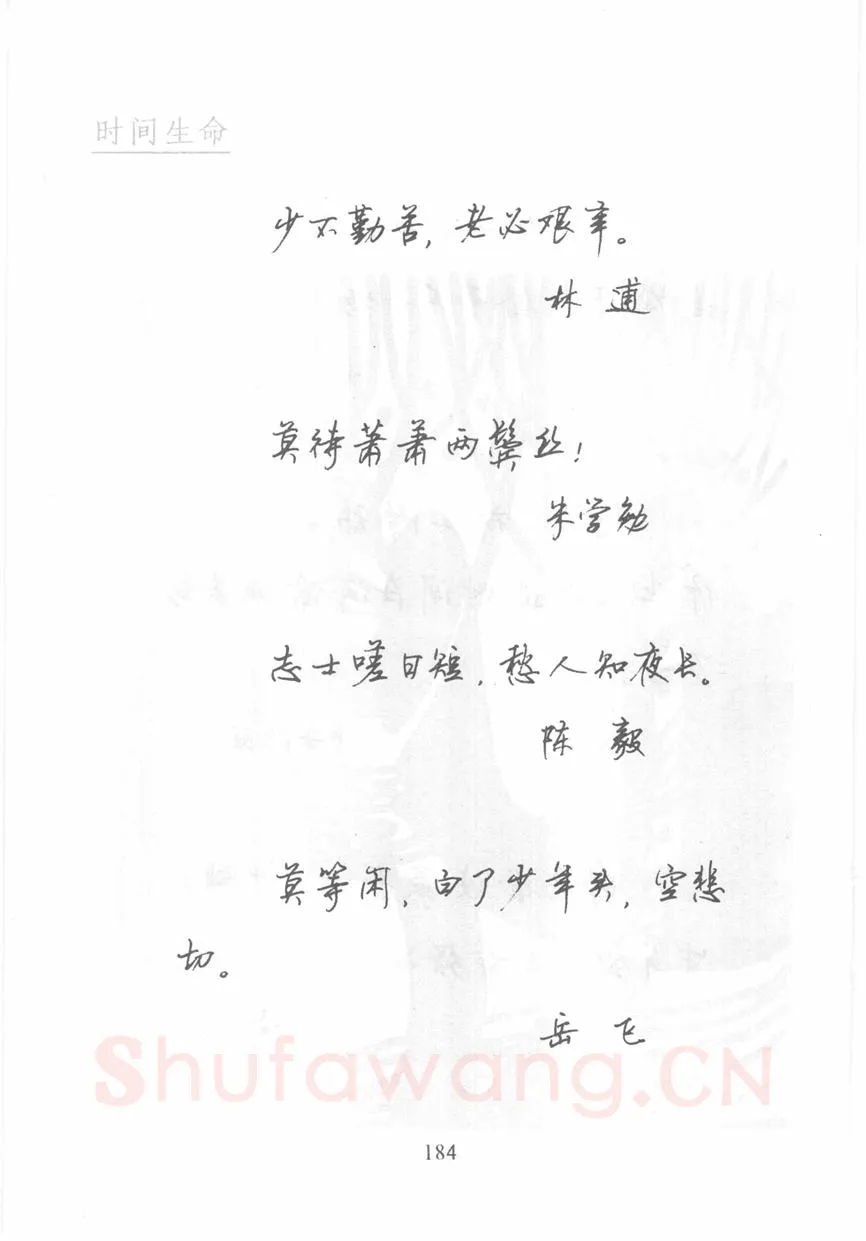 时间生命
少不勤苦，老必艰辛。
林逋
莫待萧萧两鬓丝！
朱学勉
志士嗟日短，愁人知夜长。
陈毅
莫等闲，白了少年头，空悲
切。
岳飞
Shufawang.CN
184